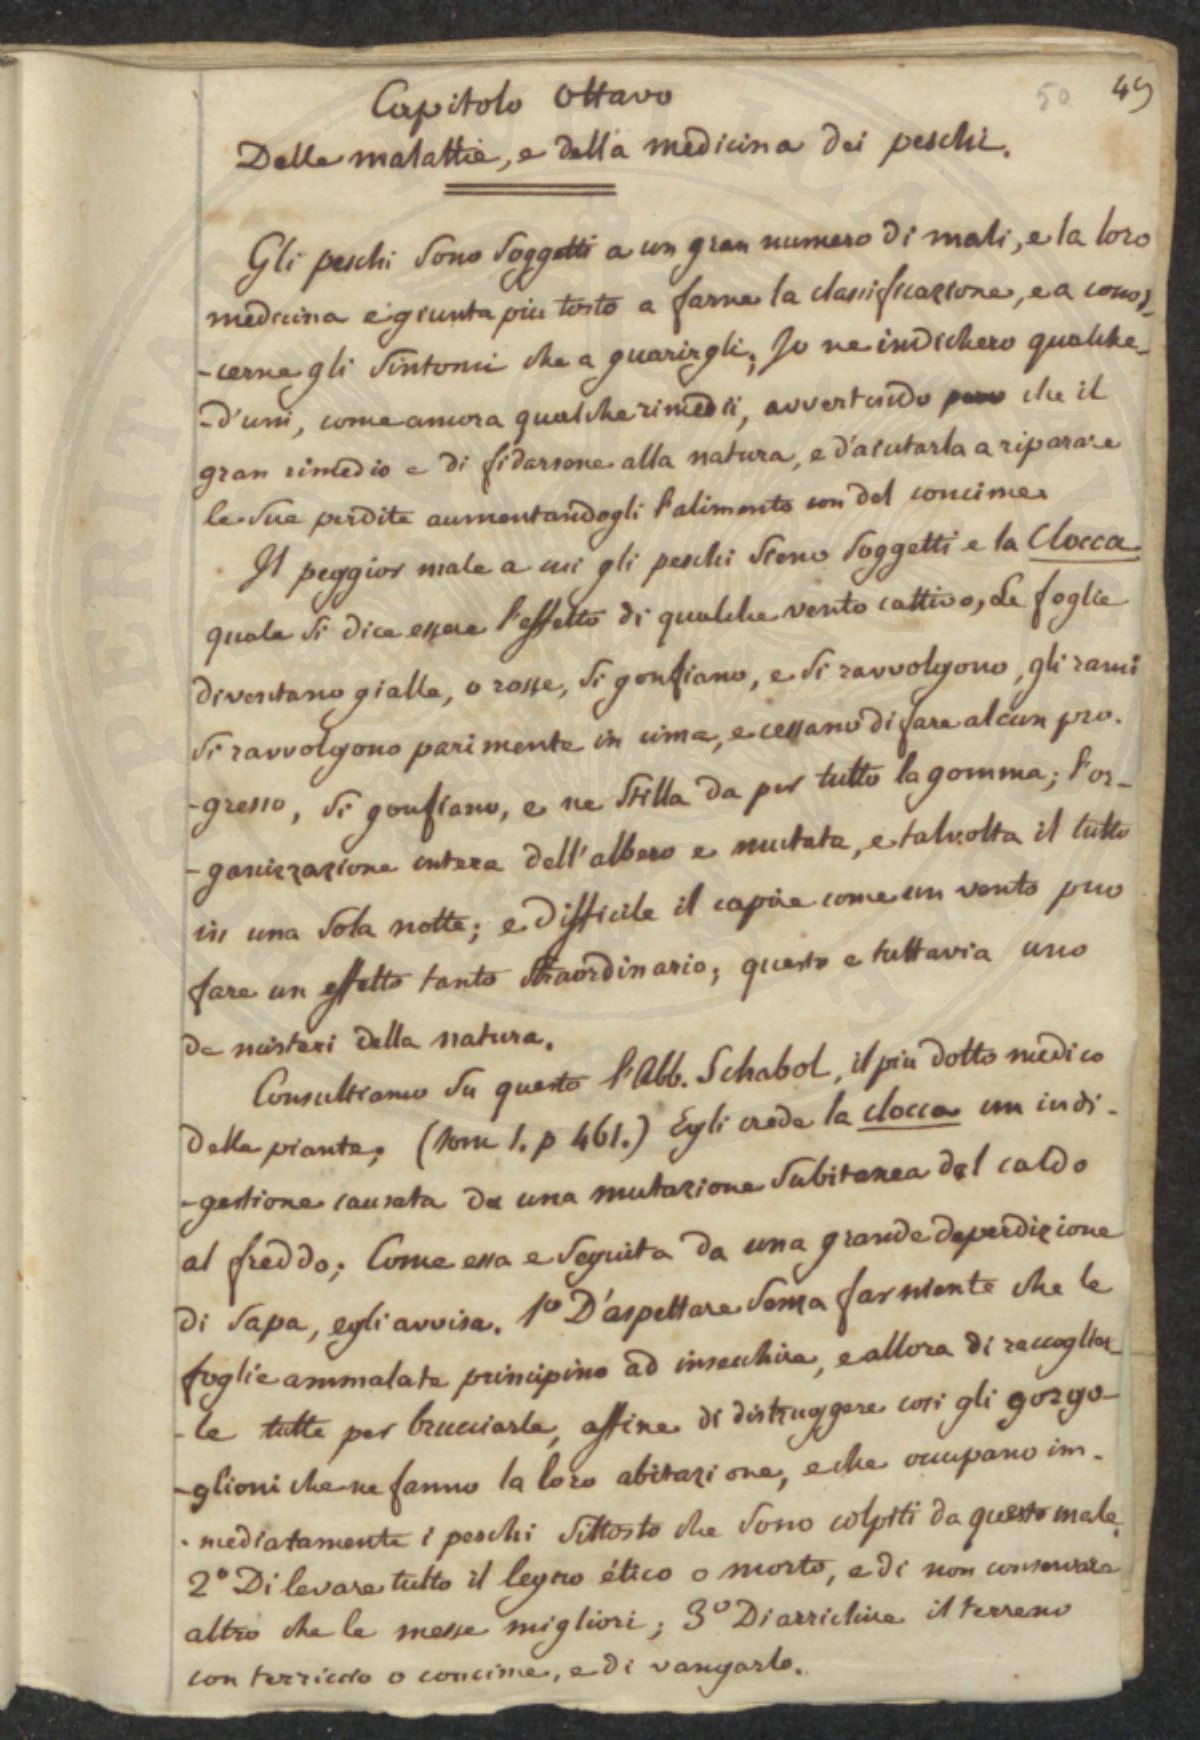 50 49
Capitolo Ottavo
Delle malattie, e della medicina dei peschi.
Gli peschi sono soggetti a un gran numero di mali, e la loro
medicina e giunta piu tosto a farne la classificazione, e a conos-
-cerne gli sintomi che a guarirgli; Io ne indichero qualche-
-d'uni, come ancora qualche rimedii, avvertendo pero che il
gran rimedio e di fidarsene alla natura, e d'aiutarla a riparare
le sue perdite aumentandogli l'alimento con del concime.
Il peggior male a cui gli peschi sieno soggetti e la Clocca
quale si dice essere l'effetto di qualche vento cattivo, Le foglie
diventano gialle, o rosse, si gonfiano, e si ravvolgono, gli rami
si ravvolgono parimente in cima, e cessano di fare alcun pro-
-gresso, si gonfiano, e ne stilla da per tutto la gomma; l'or-
-ganizzazione intera dell'albero e mutata, e talvolta il tutto
in una sola notte; e difficile il capire come un vento puo
fare un effetto tanto straordinario; questo e tuttavia uno
de misteri della natura.
Consultiamo su questo l'Abb. Schabol, il piu dotto medico
delle piante; (tom 1. p 461.) Egli crede la clocca un indi-
-gestione causata da una mutazione subitanea del caldo
al freddo; Come essa e seguita da una grande deperdizione
di sapa, egli avvisa. 1º D'aspettare senza far niente che le
foglie ammalate principino ad insecchire, e allora di raccoglier
-le tutte per bruciarle, affine di distruggere cosi gli gorgo-
-glioni che ne fanno la loro abitazione, e che occupano im-
-mediatamente i peschi sittosto che sono colpiti da questo male.
2º Di levare tutto il legno ético o morto, e di non conservare
altro che le messe migliori; 3º Di arrichire il terreno
con terriccio o concime, e di vangarlo.